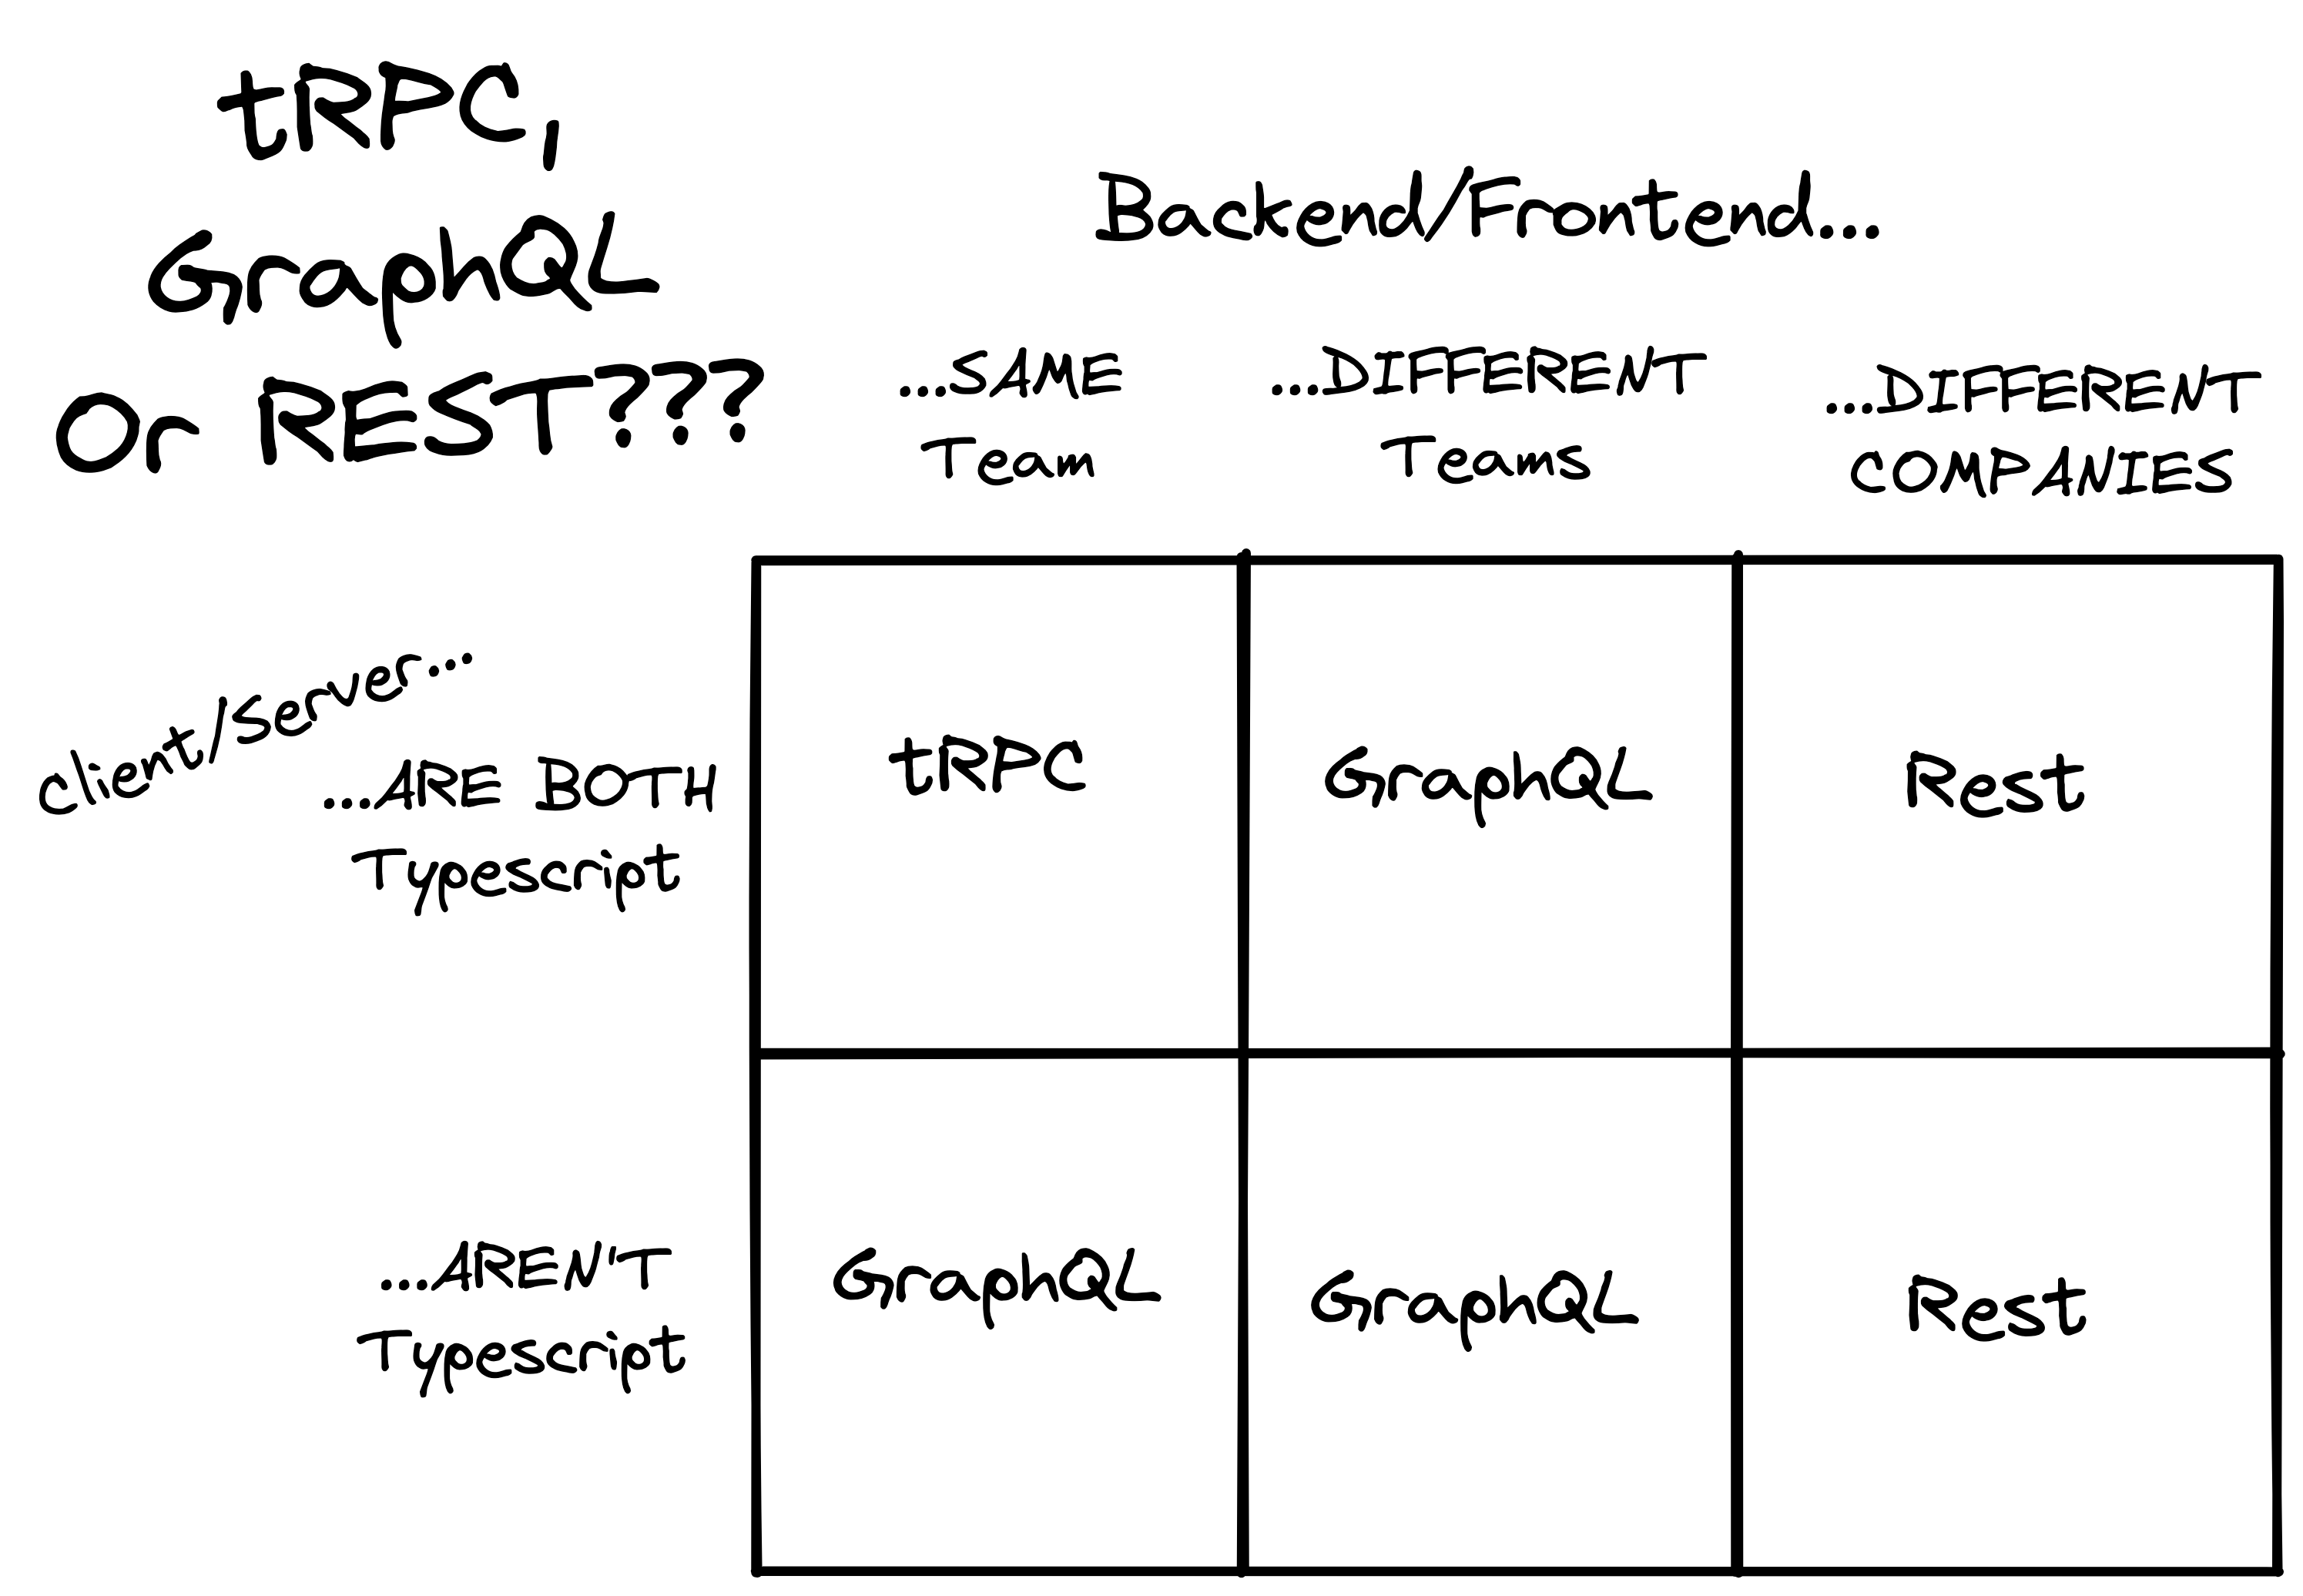 tRPC,
GraphQL
Or REST???
Backend/Frontend...
...SAME
Team
...DIFFERENT
Teams
...DIFFERENT
COMPANIES
client/server...
...ARE BOTH
Typescript
tRPC
GraphQL
Rest
...AREN'T
Typescript
GraphQL
GraphQL
Rest